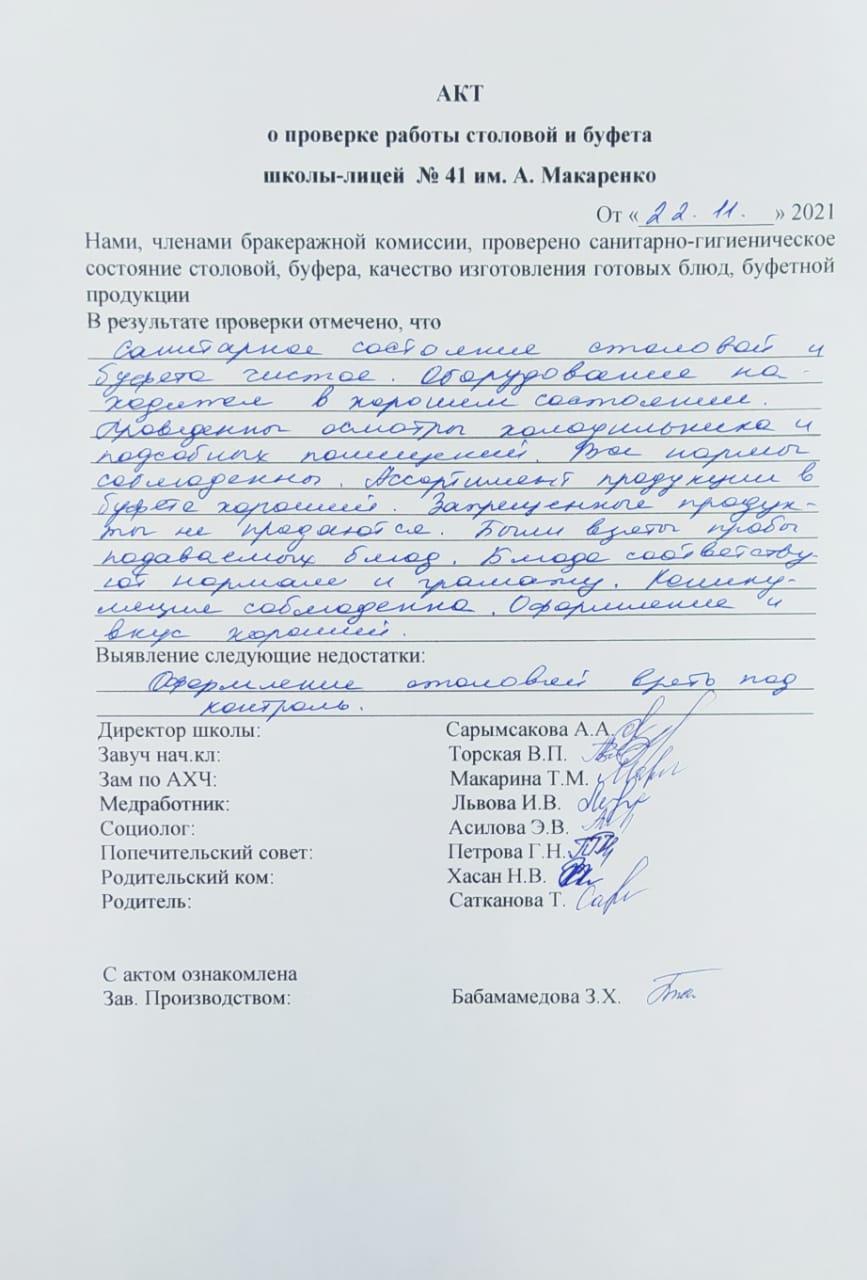 АКТ
о проверке работы столовой и буфета
школы-лицей № 41 им. А. Макаренко
От « 22. 11. » 2021
Нами, членами бракеражной комиссии, проверено санитарно-гигиеническое
состояние столовой, буфера, качество изготовления готовых блюд, буфетной
продукции
В результате проверки отмечено, что
Санитарное состояние столовой и
буфета чистое. Оборудование на-
ходятся в хорошем состоянии.
Проведенны осмотры холодильника и
подсобных помещений. Все нормы
соблюденны. Ассортимент продукции в
буфете хороший. Запрещенные продук-
ты не продаются. Были взяты пробы
подаваемых блюд. Блюда соответству-
ют нормам и грамажу.
соблюденна. Оформление и
вкус хороший.
Выявление следующие недостатки:
Оформление столовой под
контроль.
Директор школы: Сарымсакова А.А.
Завуч нач.кл: Торская В.П.
Зам по АХЧ: Макарина Т.М.
Медработник: Львова И.В.
Социолог: Асилова Э.В.
Попечительский совет: Петрова Г.Н.
Родительский ком: Хасан Н.В.
Родитель: Сатканова Т.
С актом ознакомлена
Зав. Производством: Бабамамедова З.Х.